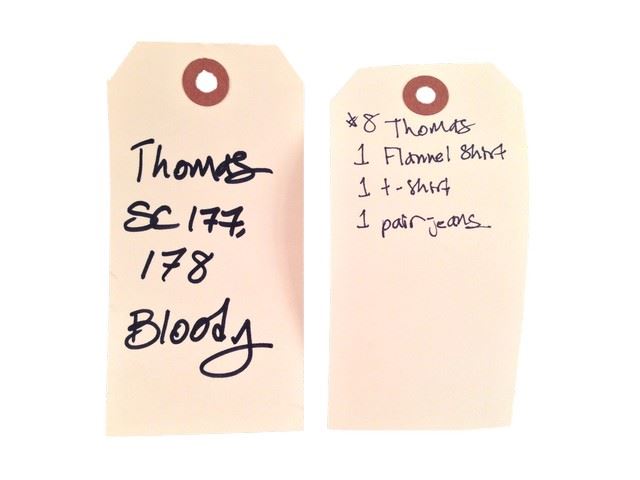 Thomas
SC 177,
178
Bloody
#8 Thomas
1 Flannel Shirt
1 t-shirt
1 pair jeans